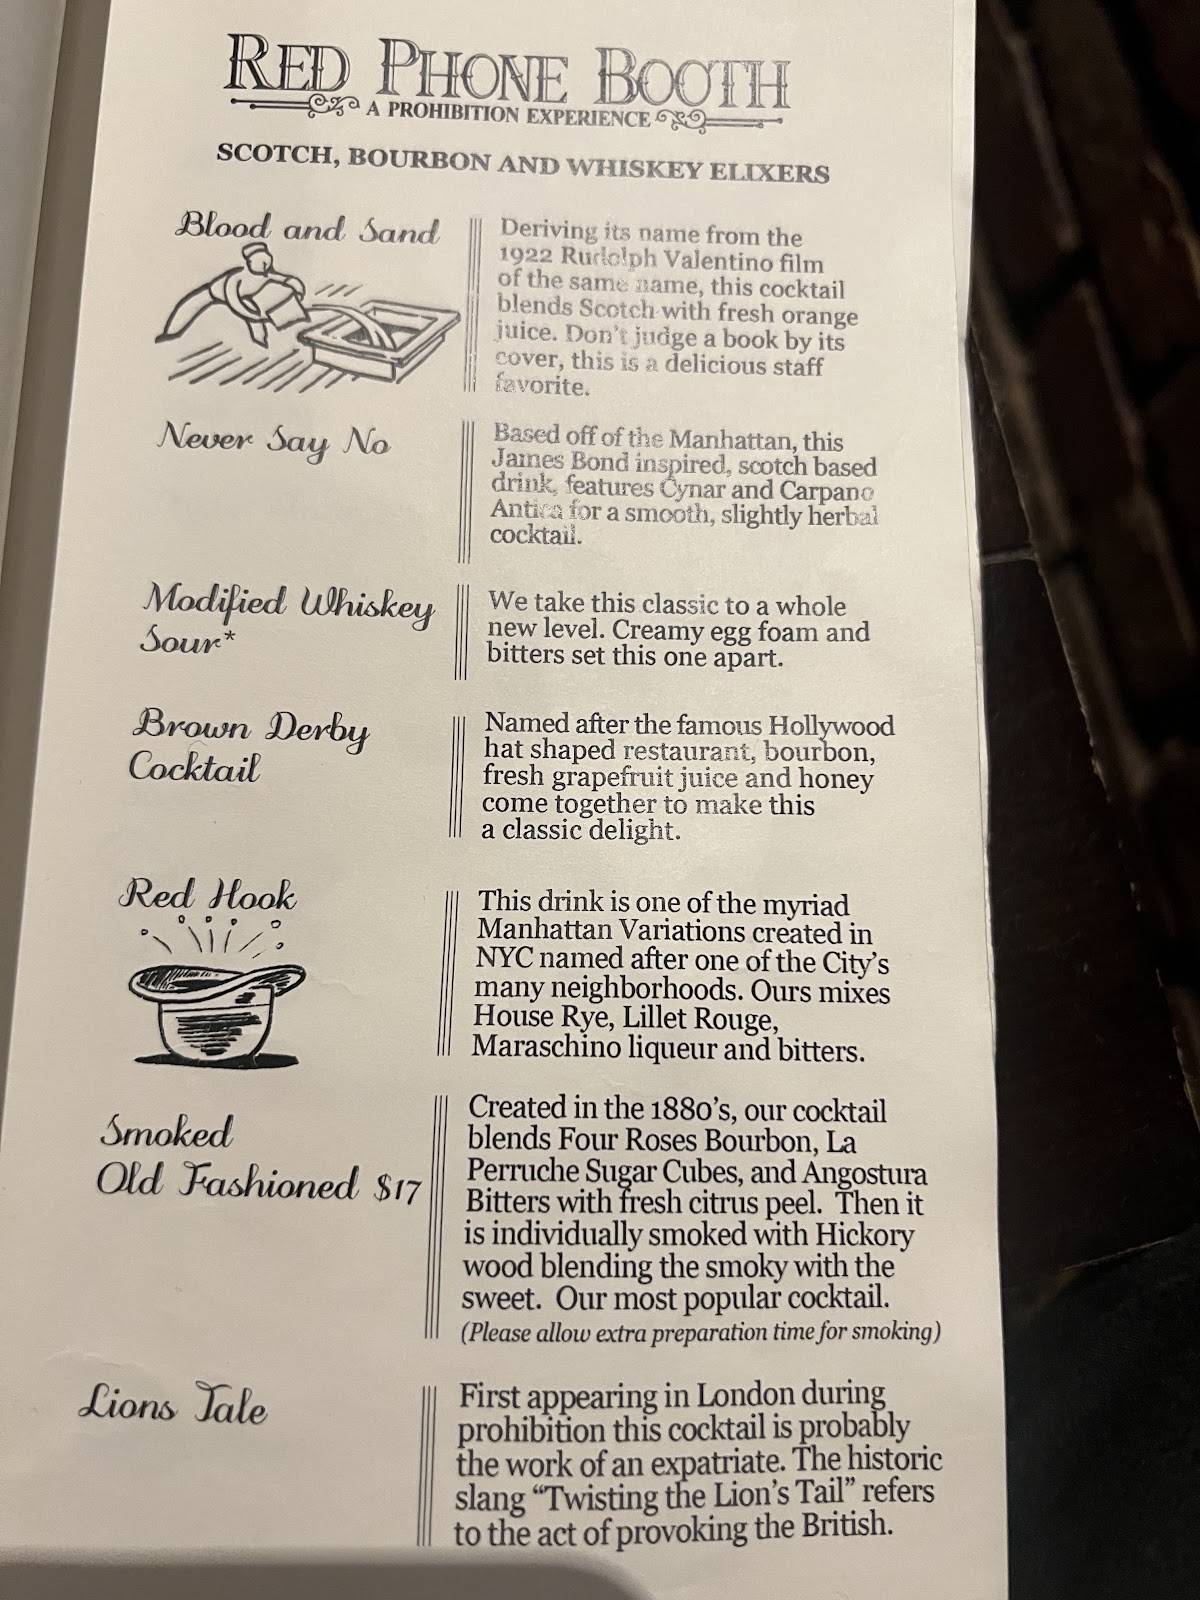 RED PHONE BOOTH
A PROHIBITION EXPERIENCE
SCOTCH, BOURBON AND WHISKEY ELIXERS
Blood and Sand
Deriving its name from the
1922 Rudolph Valentino film
of the same name, this cocktail
blends Scotch with fresh orange
juice. Don't judge a book by its
cover, this is a delicious staff
favorite.
Never Say No
Based off of the Manhattan, this
James Bond inspired, scotch based
drink, features Cynar and Carpano
Antica for a smooth, slightly herbal
cocktail.
Modified Whiskey
Sour*
We take this classic to a whole
new level. Creamy egg foam and
bitters set this one apart.
Brown Derby
Cocktail
Named after the famous Hollywood
hat shaped restaurant, bourbon,
fresh grapefruit juice and honey
come together to make this
a classic delight.
Red Hook
This drink is one of the myriad
Manhattan Variations created in
NYC named after one of the City's
many neighborhoods. Ours mixes
House Rye, Lillet Rouge,
Maraschino liqueur and bitters.
Smoked
Old Fashioned $17
Created in the 1880's, our cocktail
blends Four Roses Bourbon, La
Perruche Sugar Cubes, and Angostura
Bitters with fresh citrus peel. Then it
is individually smoked with Hickory
wood blending the smoky with the
sweet. Our most popular cocktail.
(Please allow extra preparation time for smoking)
Lions Tale
First appearing in London during
prohibition this cocktail is probably
the work of an expatriate. The historic
slang “Twisting the Lion's Tail” refers
to the act of provoking the British.